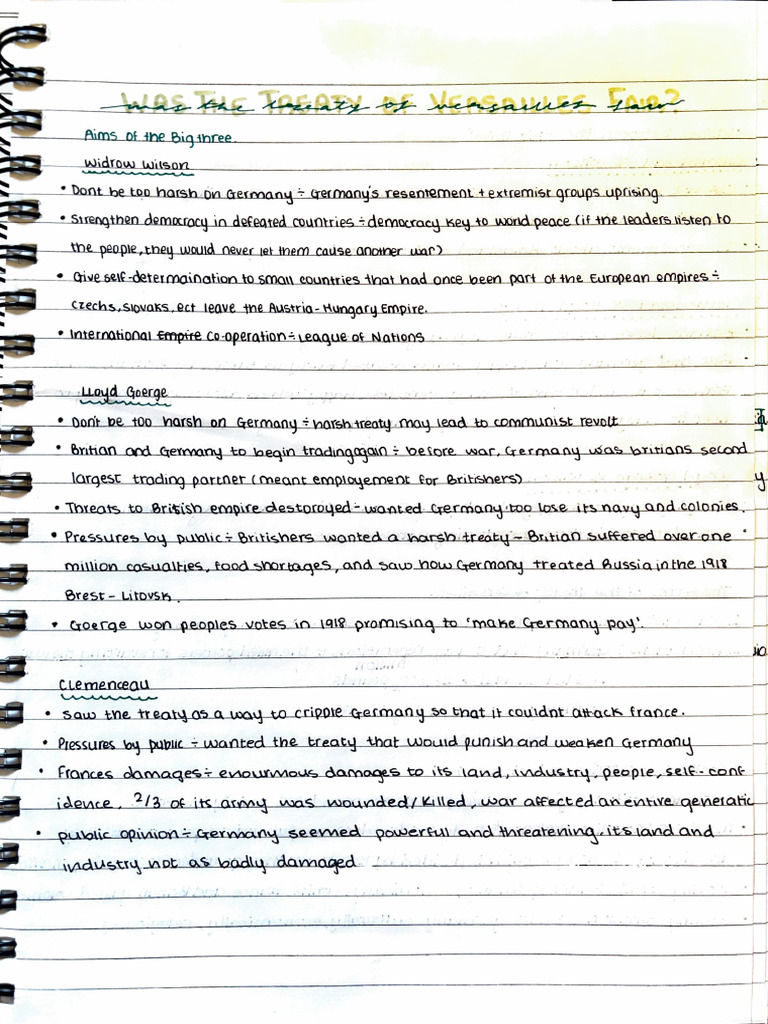 WAS THE TREATY OF VERSAILLES FAIR?
was the treaty of versailles fair
Aims of the Big three.
Widrow Wilson
• Dont be too harsh on Germany ÷ Germany's resentement + extremist groups uprising.
• Strengthen democracy in defeated countries ÷ democracy key to world peace (if the leaders listen to
the people, they would never let them cause another war)
• Give self-determaination to small countries that had once been part of the European empires ÷
Czechs, Slovaks, ect leave the Austria-Hungary Empire.
• International Empire Co-operation ÷ League of Nations
Lloyd Goerge
• Don't be too harsh on Germany ÷ harsh treaty may lead to communist revolt
• Britian and Germany to begin trading again ÷ before war, Germany was britians second
largest trading partner (meant employement for Britishers)
• Threats to British empire destoroyed - wanted Germany too lose its navy and colonies.
• Pressures by public ÷ Britishers wanted a harsh treaty - Britian suffered over one
million casualties, food shortages, and saw how Germany treated Russia in the 1918
Brest - Litovsk.
• Goerge won peoples votes in 1918 promising to 'make Germany pay'.
Clemenceau
• saw the treaty as a way to cripple Germany so that it couldnt attack france.
• Pressures by public ÷ wanted the treaty that would punish and weaken Germany
• frances damages ÷ enourmous damages to its land, industry, people, self-conf
idence. 2/3 of its army was wounded/killed, war affected an entire generatio
• public opinion ÷ Germany seemed powerful and threatening. its land and
industry not as badly damaged